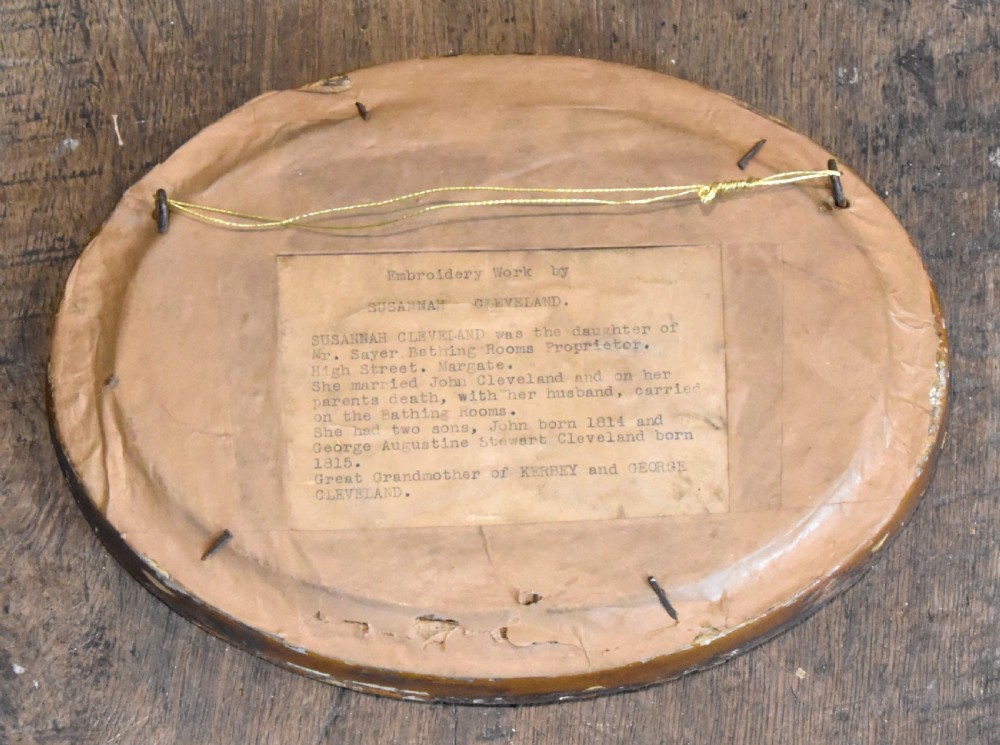 Embroidery Work by
SUSANNAH CLEVELAND.
SUSANNAH CLEVELAND was the daughter of
Mr. Sayer Bathing Rooms Proprietor.
High Street. Margate.
She married John Cleveland and on her
parents death, with her husband, carried
on the Bathing Rooms.
She had two sons, John born 1814 and
George Augustine Stewart Cleveland born
1815.
Great Grandmother of KERBEY and GEORGE
CLEVELAND.